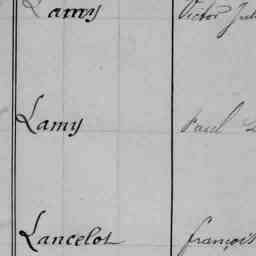 Lamy Victor Jul
Lamy Paul
Lancelot françois